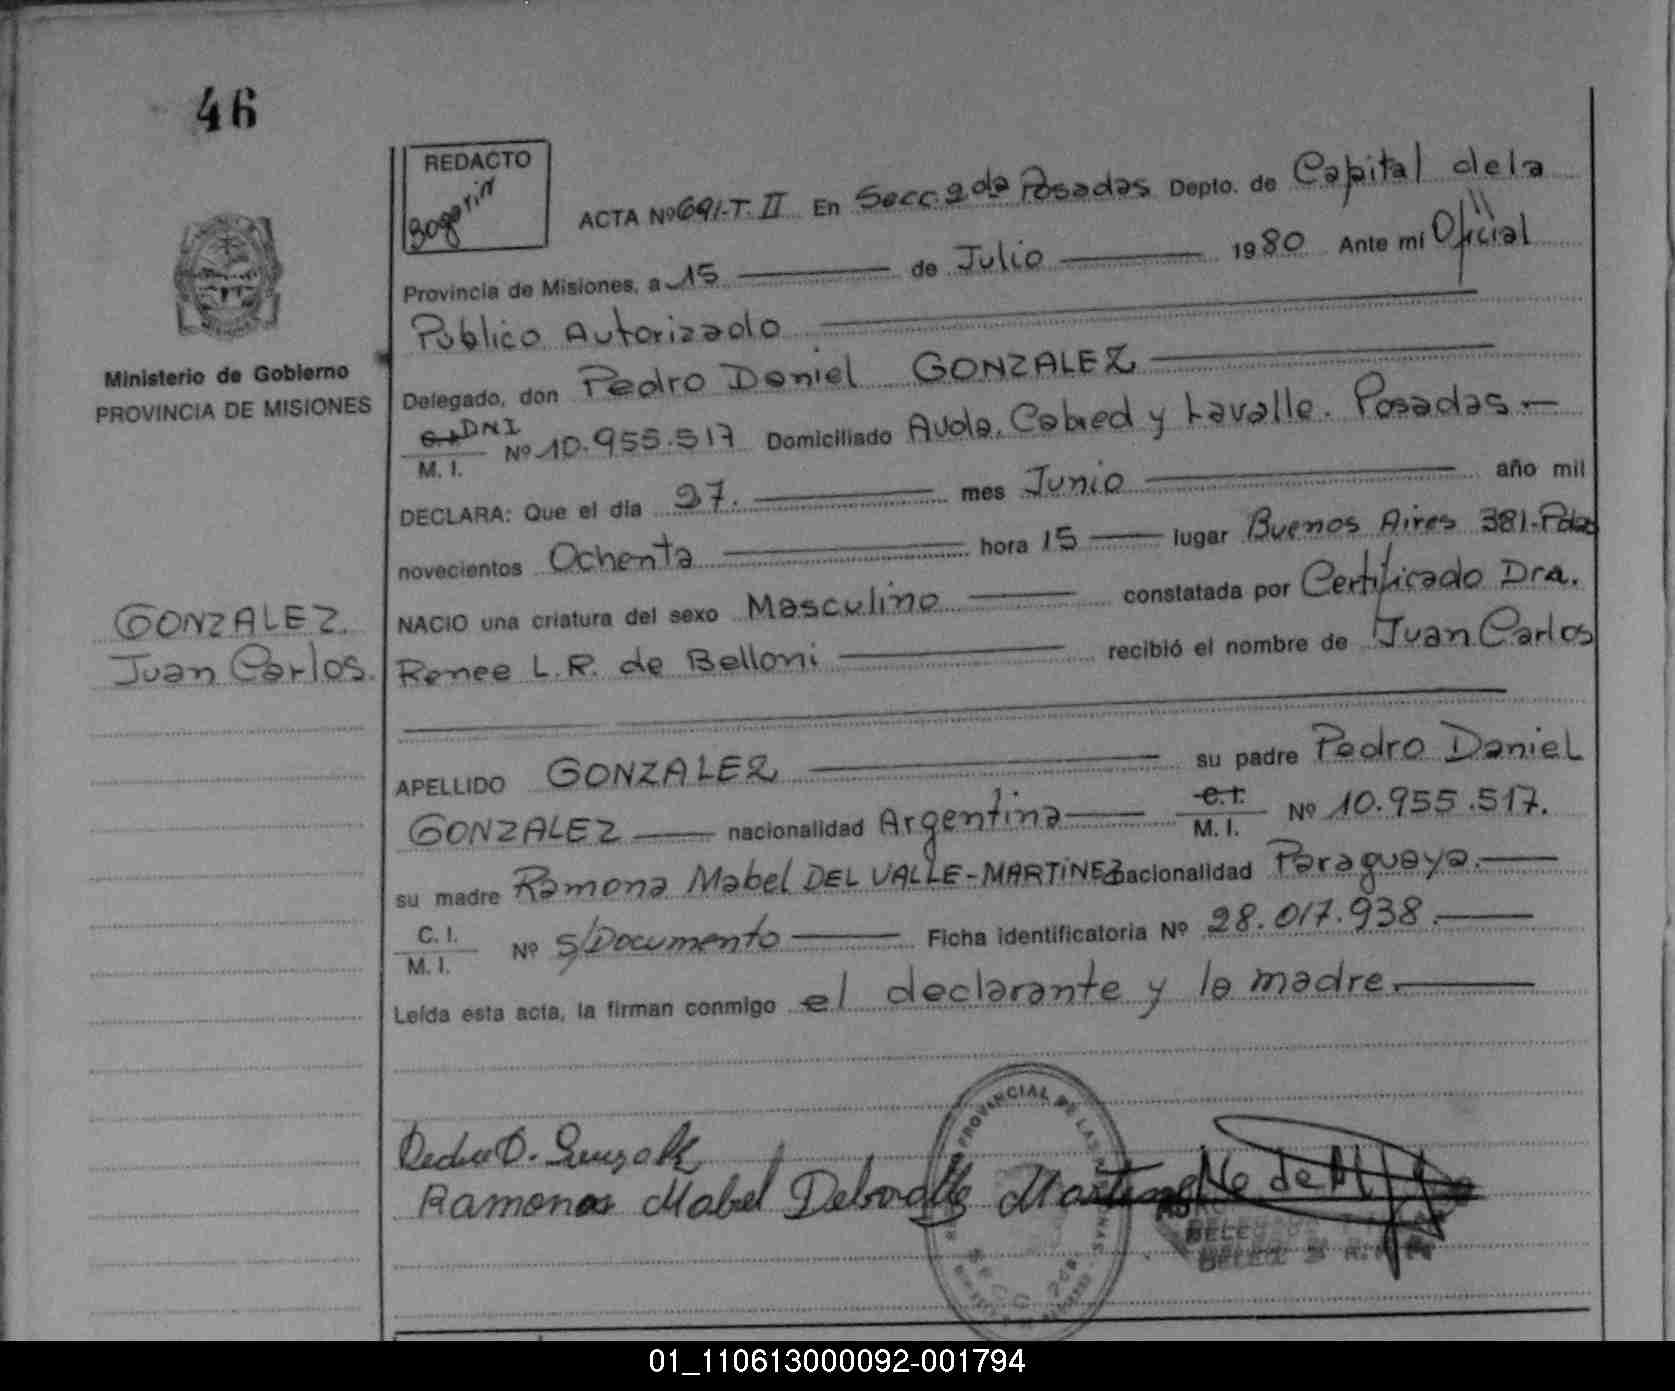 46
REDACTO
Bogarin
ACTA Nº 691-T. II En Secc. 2da Posadas Depto. de Capital de la
Provincia de Misiones, a 15 de Julio 1980 Ante mí Oficial
Público Autorizado
Ministerio de Gobierno
PROVINCIA DE MISIONES
Delegado, don Pedro Daniel GONZALEZ
DNI
M. I. Nº 10.955.517 Domiciliado Avda. Cabred y Lavalle. Posadas.-
DECLARA: Que el día 27. mes Junio año mil
novecientos Ochenta hora 15 lugar Buenos Aires 381-Pdas
NACIO una criatura del sexo Masculino constatada por Certificado Dra.
GONZALEZ.
Juan Carlos.
Renee L.R. de Belloni recibió el nombre de Juan Carlos
APELLIDO GONZALEZ su padre Pedro Daniel
GONZALEZ nacionalidad Argentina C.I. M. I. Nº 10.955.517.
su madre Ramona Mabel DEL VALLE-MARTINEZ nacionalidad Paraguaya.
C. I. M. I. Nº S/Documento Ficha identificatoria Nº 28.017.938.
Leída esta acta, la firman conmigo el declarante y la madre.
Pedro D. Gonzalez
Ramona Mabel Delvalle Martinez
PROVINCIAL DE LAS
SECC. 2da.
01_110613000092-001794